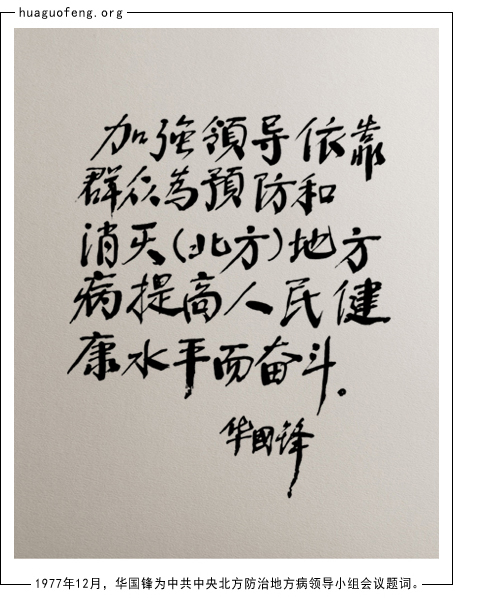 huaguofeng.org
加強領导依靠
群众為預防和
消灭(北方)地方
病提高人民健
康水平而奋斗。
华國锋
1977年12月，华国锋为中共中央北方防治地方病领导小组会议题词。